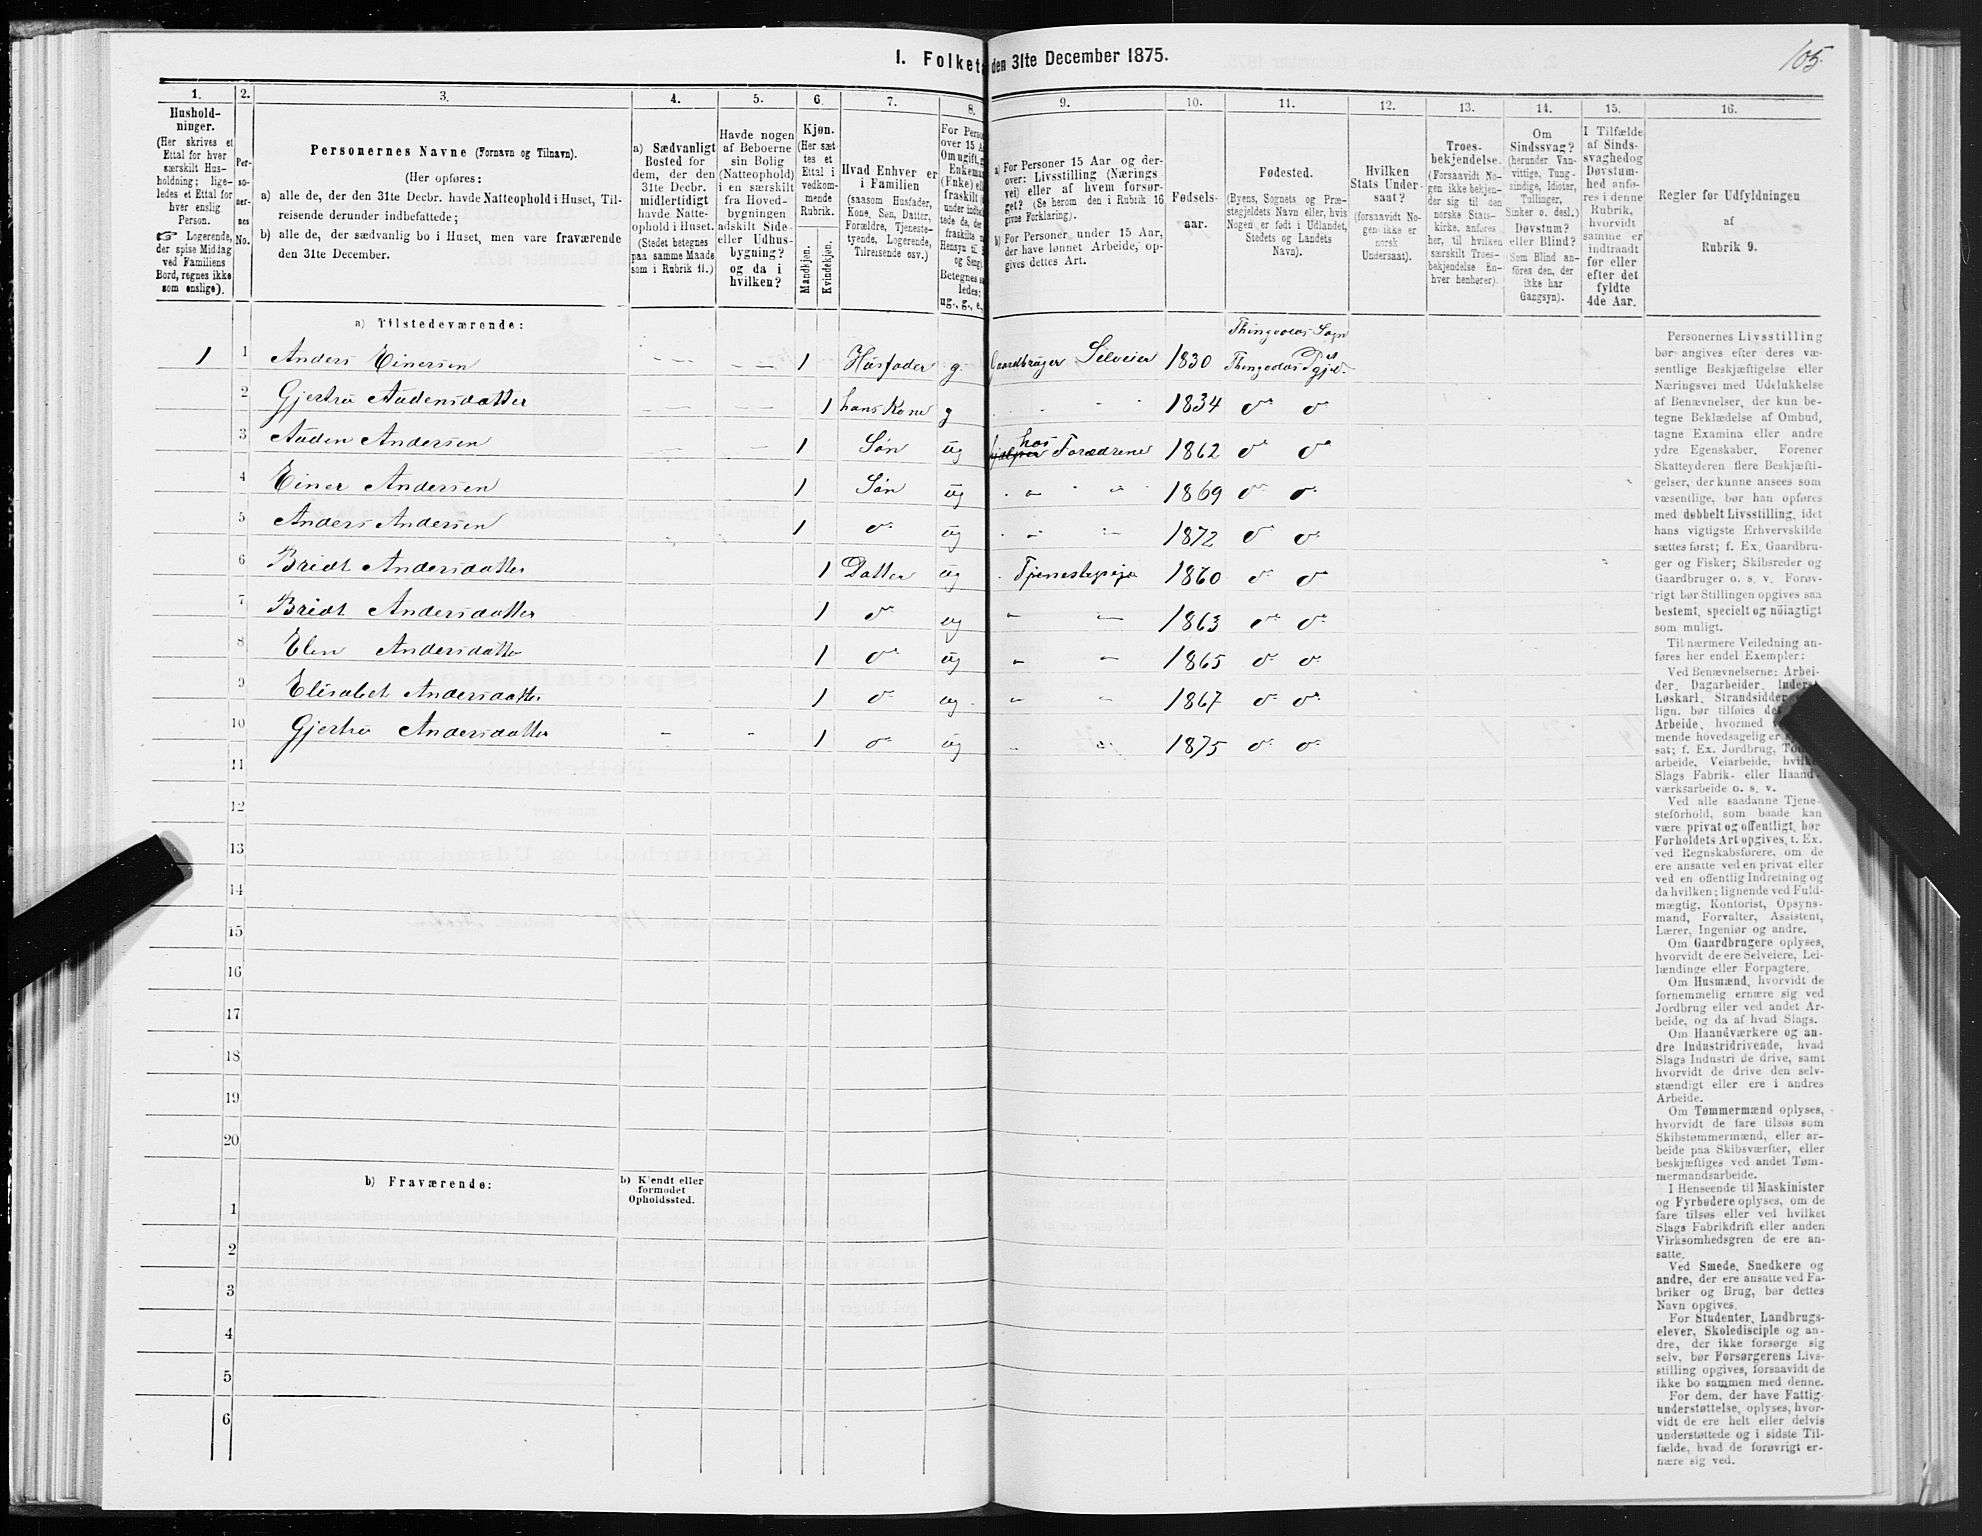 I. Folketæ
den 31te December 1875.
105
1.
2.
3.
4.
5.
6.
7.
8.
9.
10.
11.
12.
13.
14.
15.
16.
Hushold-
ninger.
(Her skrives et
Ettal for hver
særskilt Hus-
holdning; lige-
ledes et Ettal for
hver enslig
Person.
☞ Logerende,
der spise Middag
ved Familiens
Bord, regnes ikke
som enslige).
Per-
so-
ner-
nes
No.
Personernes Navne (Fornavn og Tilnavn).
(Her opføres:
a) alle de, der den 31te Decbr. havde Natteophold i Huset, Til-
reisende derunder indbefattede;
b) alle de, der sædvanlig bo i Huset, men vare fraværende
den 31te December.
a) Sædvanligt
Bosted for
dem, der den
31te Decbr.
midlertidigt
havde Natte-
ophold i Huset.
(Stedet betegnes
paa samme Maade
som i Rubrik 11.)
Havde nogen
af Beboerne
sin Bolig
(Natteophold)
i en særskilt
fra Hoved-
bygningen
adskilt Side-
eller Udhus-
bygning?
og da i
hvilken?
Kjøn.
(Her sæt-
tes et
Ettal i
vedkom-
mende
Rubrik.
Mandkjøn.
Kvindekjøn.
Hvad Enhver er
i Familien
(saasom Husfader,
Kone, Søn, Datter,
Forældre, Tjeneste-
tyende, Logerende,
Tilreisende osv.)
For Perso
over 15 A
Om ugift, g
Enkema
(Enke) e
fraskilt
under indb
tede de, de
fraskilte
Hensyn til
og Seng
Betegnes s
ledes:
ug., g., e.,
a) For Personer 15 Aar og der-
over: Livsstilling (Nærings
vei) eller af hvem forsør-
get? (Se herom den i Rubrik 16
givne Forklaring).
b) For Personer under 15 Aar,
der have lønnet Arbeide, op-
gives dettes Art.
Fødsels-
aar.
Fødested.
(Byens, Sognets og Præ-
stegjeldets Navn eller, hvis
Nogen er født i Udlandet,
Stedets og Landets
Navn).
Hvilken
Stats Under-
saat?
(forsaavidt No-
gen ikke er
norsk
Undersaat).
Troes-
bekjendelse.
(Forsaavidt No-
gen ikke bekjen-
der sig til den
norske Stats-
kirke, anføres
her, til hvilken
særskilt Troes-
bekjendelse En-
hver henhører).
Om
Sindssvag?
(herunder Van-
vittige, Tung-
sindige, Idioter,
Tullinger,
Sinker o. desl.)
Døvstum?
eller Blind?
(Som Blind an-
føres den, der
ikke har
Gangsyn).
I Tilfælde
af Sinds-
svaghedog
Døvstum-
hed anfø-
res i denne
Rubrik,
hvorvidt
samme er
indtraadt
før eller
efter det
fyldte
4de Aar.
Regler for Udfyldningen
af
Rubrik 9.
a) Tilstedeværende:
Thingvolds Sogn
1 1 Anders Einersen — — — — 1 Husfader g. Gaardbruger Selveier 1830 Thingvolds Pst gjel.
2 Gjertru Audensdatter — — — — 1 hans Kone g " " 1834 do do
3 Auden Andersen — — 1 Søn ug hos Forædrene 1862 do do
4 Einer Andersen 1 Søn ug " " 1869 do do
5 Anders Andersen 1 do ug " " 1872 do do
6 Bridt Andersdatter 1 Datter ug 1860 do do
7 Bridt Andersdatter 1 do ug " " 1863 do do
8 Elen Andersdatter 1 do ug " " 1865 do do
9 Elisabet Andersdatter 1 do ug " " 1867 do do
10 Gjertru Andersdatter - - 1 do ug " " 1875 do do
11
12
13
14
15
16
17
18
19
20
b) Fraværende:
b) Kjendt eller
formodet
Opholdssted.
1
2
3
4
5
6
Personernes Livsstilling
bør angives efter deres væ-
sentlige Beskjæftigelse eller
Næringsvei med Udelukkelse
af Benævnelser, der kun be-
tegne Beklædelse af Ombud,
tagne Examina eller andre
ydre Egenskaber. Forener
Skatteyderen flere Beskjæfti-
gelser, der kunne ansees som
væsentlige, bør han opføres
med dobbelt Livsstilling, idet
hans vigtigste Erhvervskilde
sættes først; f. Ex. Gaardbru-
ger og Fisker; Skibsreder og
Gaardbruger o. s. v. Forøv-
rigt bør Stillingen opgives saa
bestemt, specielt og nöiagtigt
som muligt.
Til nærmere Veiledning an-
føres her endel Exempler:
Ved Benævnelserne: Arbei-
der, Dagarbeider, Inders
Løskarl, Strandsidder
lign. bør tilføies det
Arbeide, hvormed
mende hovedsagelig er
sat; f. Ex. Jordbrug, Tøm
arbeide, Veiarbeide, hvilke
Slags Fabrik- eller Haand-
værksarbeide o. s. v.
Ved alle saadanne Tjene-
steforhold, som baade kan
være privat og offentligt, bør
Forholdets Art opgives, t. Ex.
ved Regnskabsførere, om de
ere ansatte ved en privat eller
ved en offentlig Indretning og
da hvilken; lignende ved Fuld-
mægtig, Kontorist, Opsyns-
mand, Forvalter, Assistent,
Lærer, Ingeniør og andre.
Om Gaardbrugere oplyses,
hvorvidt de ere Selveiere, Lei-
lændinge eller Forpagtere.
Om Husmænd, hvorvidt de
fornemmelig ernære sig ved
Jordbrug eller ved andet Ar-
beide, og da af hvad Slags.
Om Haandværkere og an-
dre Industridrivende, hvad
Slags Industri de drive, samt
hvorvidt de drive den selv-
stændigt eller ere i andres
Arbeide.
Om Tømmermænd oplyses,
hvorvidt de fare tilsøs som
Skibstømmermænd, eller ar-
beide paa Skibsværfter, eller
beskjæftiges ved andet Tøm-
mermandsarbeide.
I Henseende til Maskinister
og Fyrbødere oplyses, om de
fare tilsøs eller ved hvilket
Slags Fabrikdrift eller anden
Virksomhedsgren de ere an-
satte.
Ved Smede, Snedkere og
andre, der ere ansatte ved Fa-
briker og Brug, bør dettes
Navn opgives.
For Studenter, Landbrugs-
elever, Skoledisciple og an-
dre, der ikke forsørge sig
selv, bør Forsørgerens Livs-
stilling opgives, forsaavidt de
ikke bo sammen med denne.
For dem, der have Fattig-
understøttelse, oplyses, hvor-
vidt de ere helt eller delvis
understøttede og i sidste Til-
fælde, hvad de forøvrigt er-
nære sig ved.